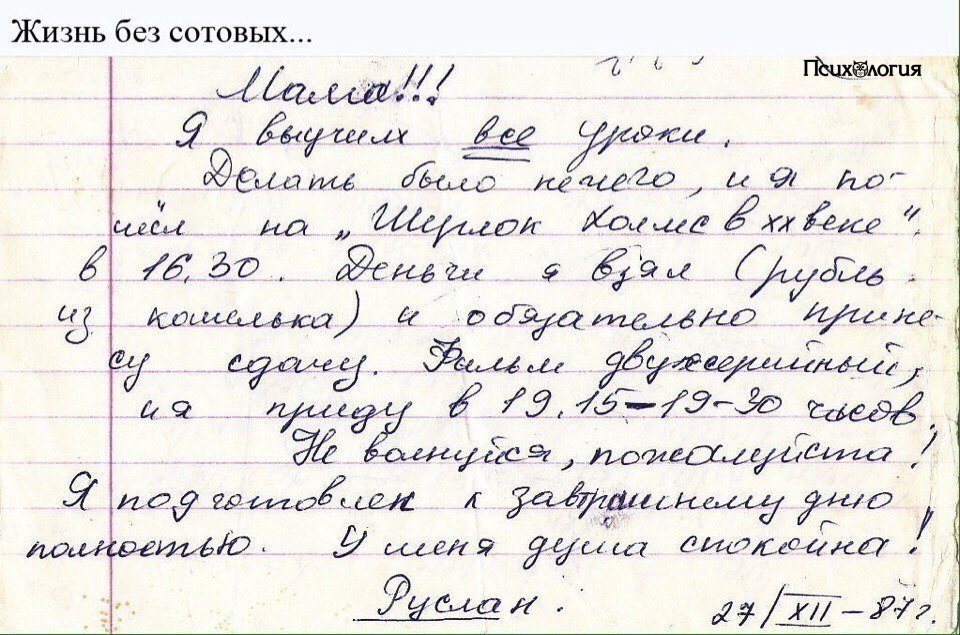 Жизнь без сотовых...
Психология
Мама!!!
Я выучил все уроки.
Делать было нечего, и я по-
шёл на „Шерлок Холмс в XX веке".
в 16.30. Деньги я взял (рубль
из кошелька) и обязательно прине-
су сдачу. Фильм двухсерийный,
и я приду в 19.15-19-30 часов.
Не волнуйся, пожалуйста!
Я подготовлен к завтрашнему дню
полностью. У меня душа спокойна!
Руслан.
27/XII-87г.